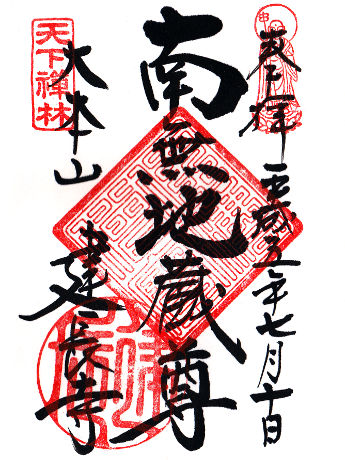 奉拝
平成五年七月十日
南無地蔵尊
天下禅林
大本山
建長寺